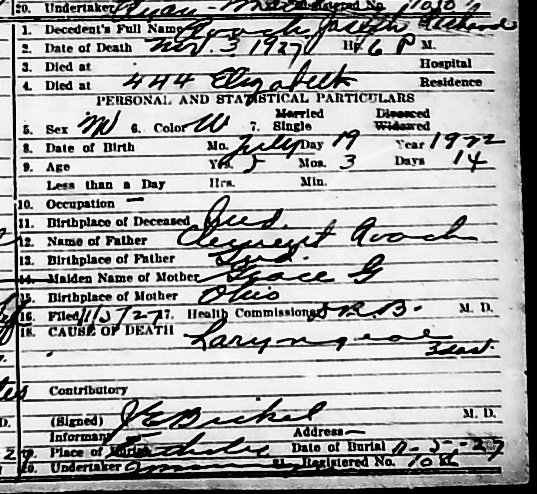 20. Undertaker Ryan Registered No.
1. Decedent's Full Name Roach, Joseph Richard
2. Date of Death Nov. 3 1927 Hr. 6 P M.
3. Died at Hospital
4. Died at 444 Elizabeth Residence
PERSONAL AND STATISTICAL PARTICULARS
Married Divorced
5. Sex M 6. Color W 7. Single Widowed
8. Date of Birth Mo. July Day 19 Year 1922
9. Age Yrs. 5 Mos. 3 Days 14
Less than a Day Hrs. Min.
10. Occupation —
11. Birthplace of Deceased Ind.
12. Name of Father Clement Roach
13. Birthplace of Father Ind.
14. Maiden Name of Mother Grace G
15. Birthplace of Mother Ohio
16. Filed 11/5/27 17. Health Commissioner R. B. M. D.
18. CAUSE OF DEATH Laryngeal
3 das.
Contributory
(Signed) J E Bickel M. D.
Informant Address —
19. Place of Burial Catholic Date of Burial 11-5-27
20. Undertaker 21. Registered No.